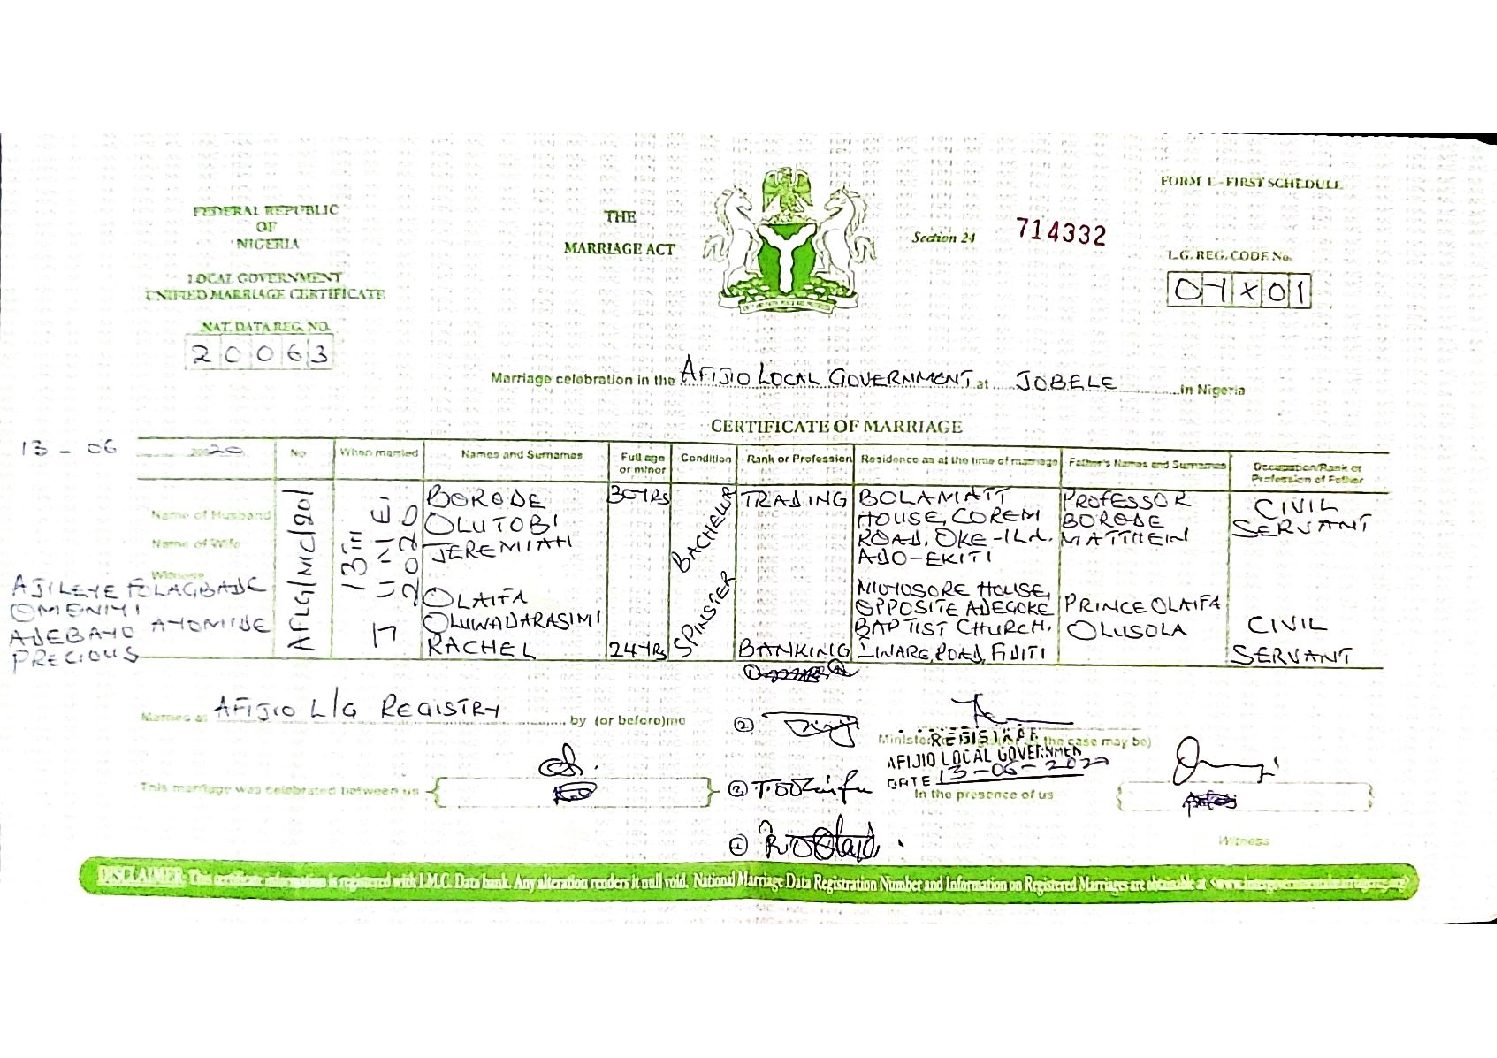 FORM E - FIRST SCHEDULE
FEDERAL REPUBLIC
OF
NIGERIA
THE
MARRIAGE ACT
Section 24
714332
LOCAL GOVERNMENT
UNIFIED MARRIAGE CERTIFICATE
L.G. REG. CODE No.
07X01
NAT. DATA REG. NO.
20063
Marriage celebration in the AFIJIO LOCAL GOVERNMENT at JOBELE in Nigeria
CERTIFICATE OF MARRIAGE
13 - 06 2020
No When married Names and Surnames Full age or minor Condition Rank or Profession Residence as at the time of marriage Father's Names and Surnames Occupation/Rank or Profession of Father
Name of Husband
Name of Wife
Witness
AJILEYE FOLAGBADE
OMENIYI
ADEBAYO AYOMIDE
PRECIOUS
AFLG/MC/201
17
13TH
JUNE
2020
BORODE
OLUTOBI
JEREMIAH
30YRS
BACHELOR
TRADING
BOLAMATT
HOUSE, COREM
ROAD, OKE-ILA,
ADO-EKITI
PROFESSOR
BORODE
MATTHEW
CIVIL
SERVANT
OLAIFA
OLUWADARASIMI
RACHEL
24YRS
SPINSTER
BANKING
HOUSE,
OPPOSITE ADEGOKE
BAPTIST CHURCH,
ROAD, FIDITI
PRINCE OLAIFA
OLUSOLA
CIVIL
SERVANT
Names at AFIJIO L/G REGISTRY by (or before) me
Minister (the case may be)
REGISTRAR
AFIJIO LOCAL GOVERNMEN
DATE 13-06-2020
This marriage was celebrated between us
In the presence of us
Witness
DISCLAIMER: This certificate information is registered with I.M.C. Data bank. Any alteration renders it null void. National Marriage Data Registration Number and Information on Registered Marriages are obtainable at